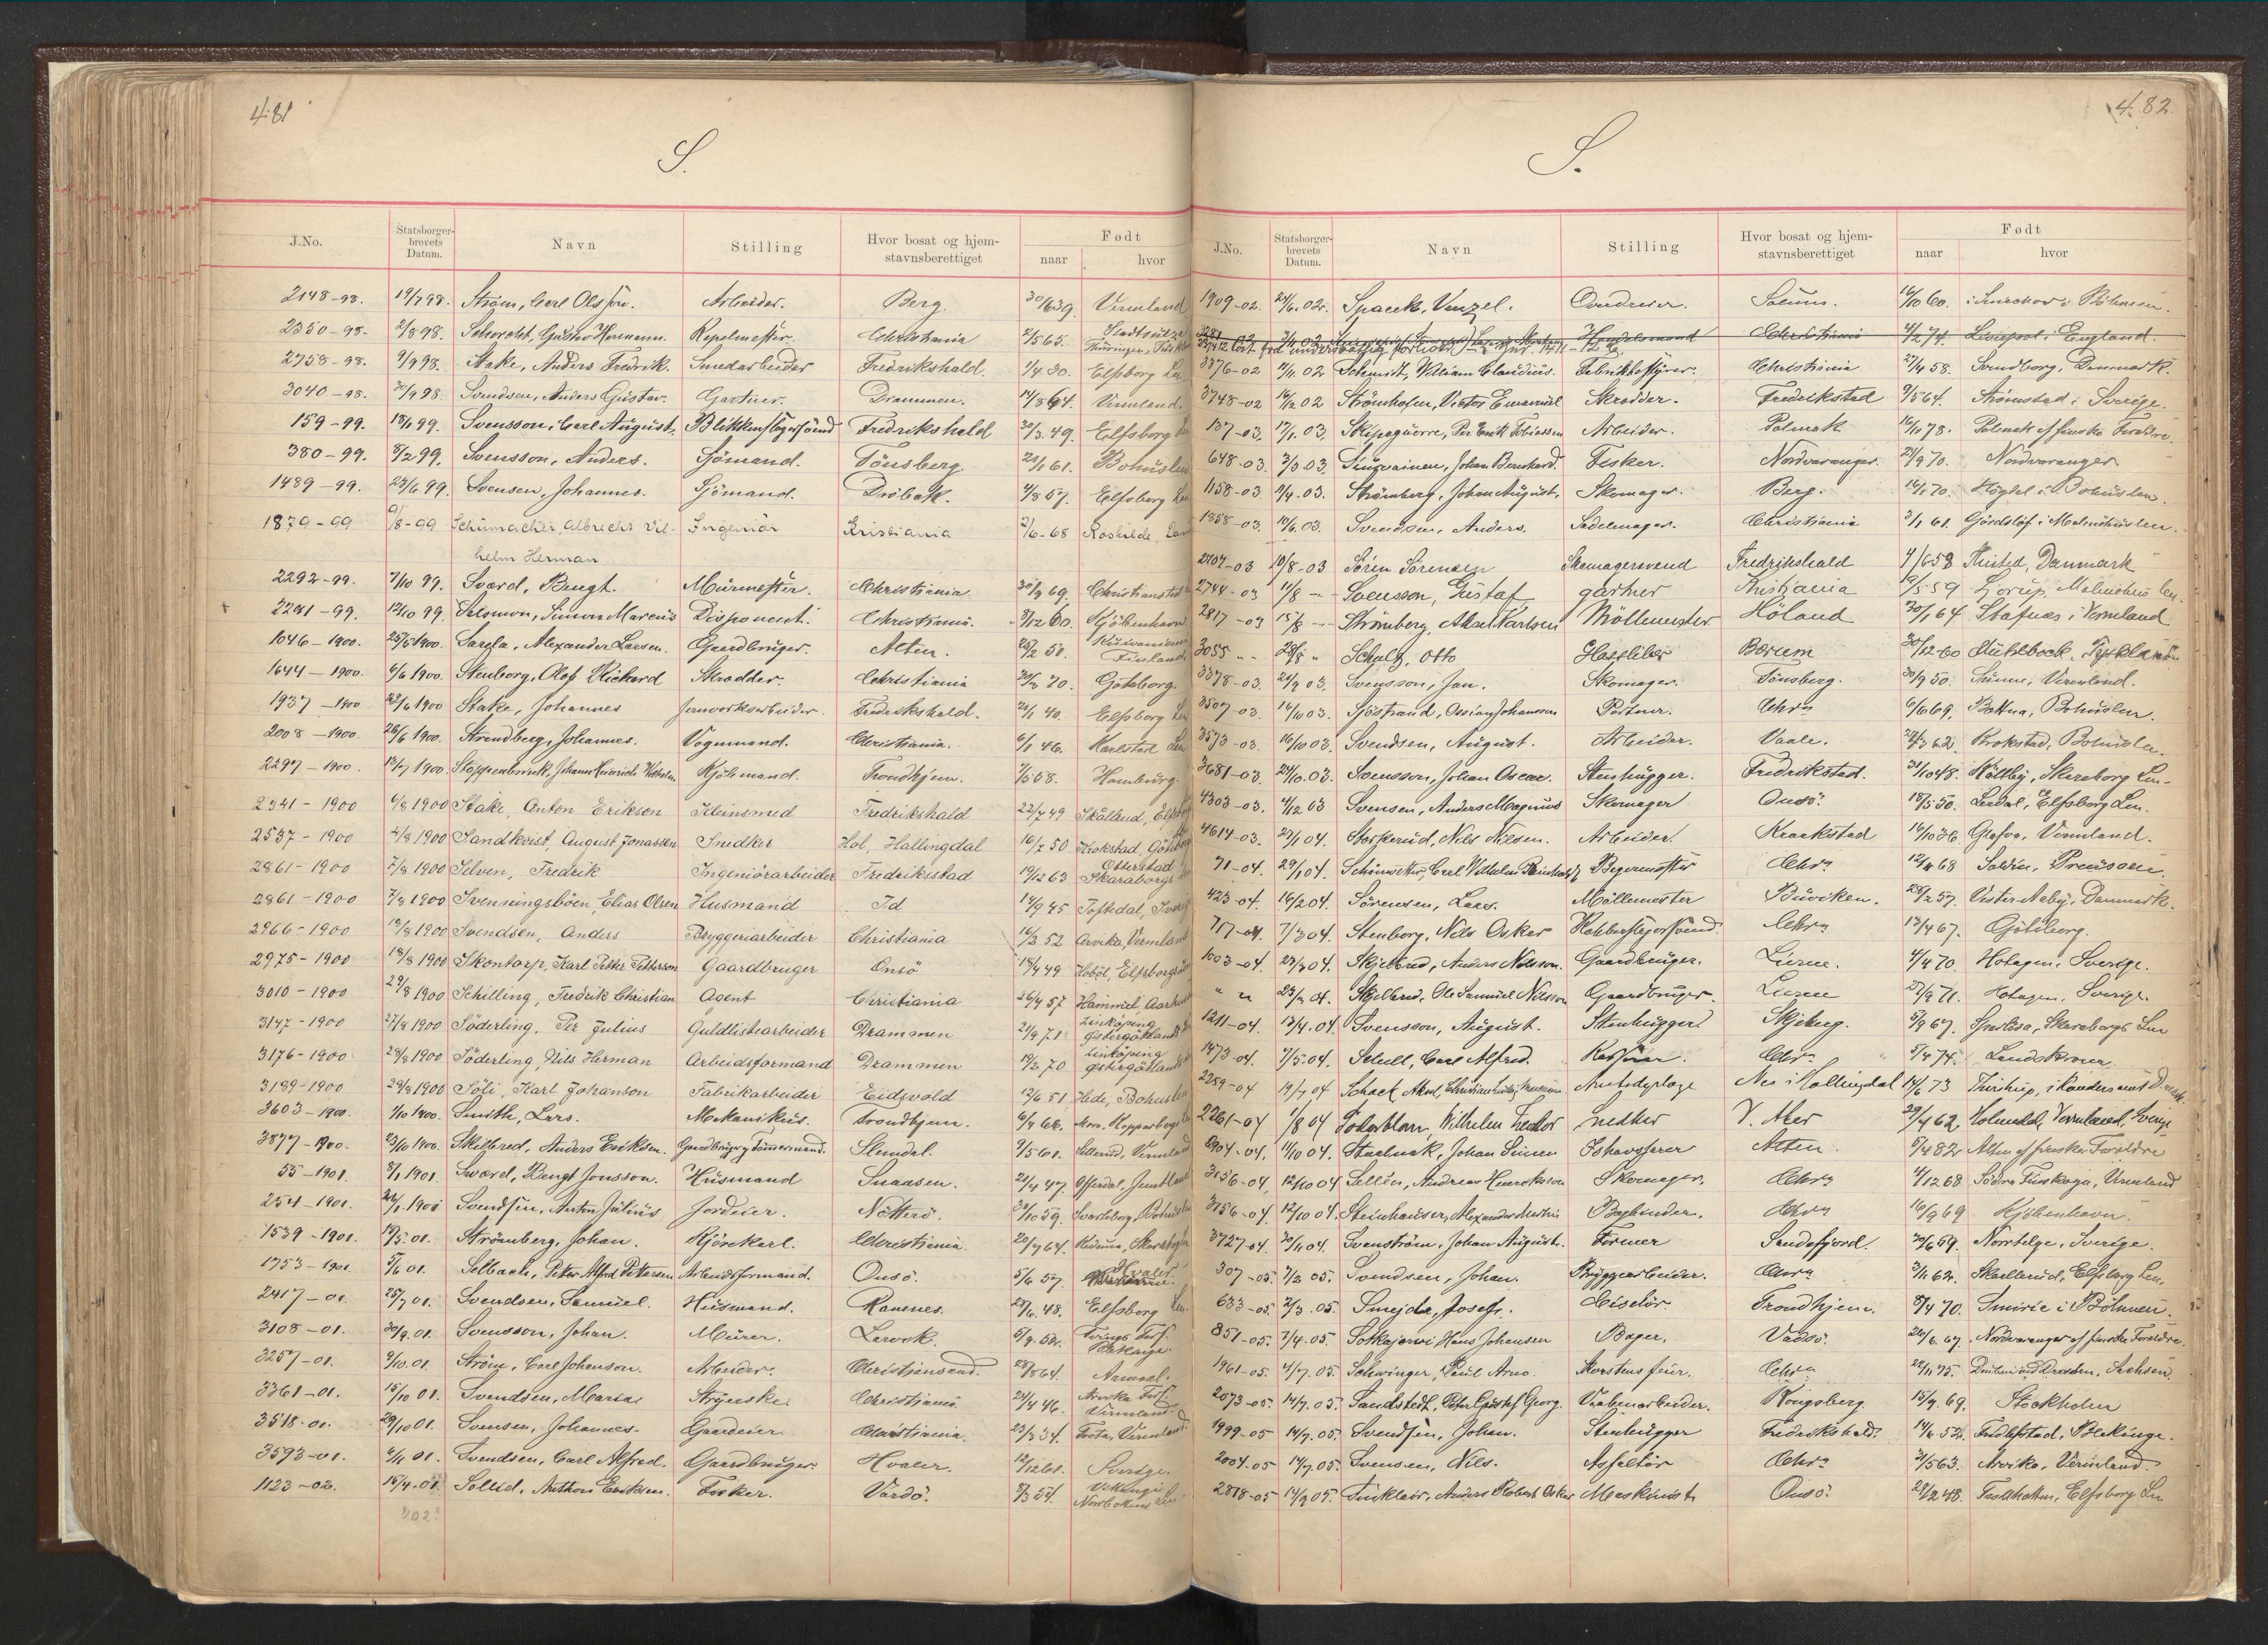 481
S.
J.No. Statsborgerbrevets Datum. Navn Stilling Hvor bosat og hjemstavnsberettiget Født naar hvor
2148-98. 19/7 98. Strøm, Carl Olsson. Arbeider. Berg. 30/6 39. Vermland
2350-98. 2/8 98. Gustav Hermann. Kapelmester. Christiania 2/5 65. Stadtsulza Thüringen,
2758-98. 9/9 98. Stake, Anders Fredrik. Smedarbeider Fredrikshald. 1/4 30. Elfsborg Len
3040-98. 30/9 98. Svendsen, Anders Gustav. Gartner. Drammen. 14/8 64. Vermland.
159-99. 18/1 99. Svensson, Carl August. Blikkenslagersvend Fredrikshald 30/3 49. Elfsborg Len
380-99. 8/2 99. Svensson, Anders. Sjömand. Tönsberg. 21/1 61. Bohuslen
1489-99. 23/6 99. Svensen, Johannes. Sjömand. Dröbak. 4/8 57. Elfsborg Len
1879-99 9/8-99 Schumacher, Albrecht Vil- Ingeniör Kristiania 2/6-68 Roskilde,
helm Herman
2292-99. 7/10 99. Sværd, Bengt. Murmester. Christiania 30/9 69. Christianstad
2241-99. 12/10 99. Salomon, Simon Marcus Disponent. Christiania. 8/12 60. Kjöbenhavn
1046-1900. 25/5 1900. Sarela, Alexander Larsen. Gaardbruger. Alten. 28/2 50. Finland
1644-1900. 6/6 1900. Stenborg, Olof Rickard Skrædder. Christiania 30/3 70. Göteborg.
1937-1900 23/6 1900 Stake, Johannes Jernverksarbeider. Fredrikshald. 21/1 40. Elfsborg Len
2008-1900. 26/6 1900. Strandberg, Johannes. Vognmand. Christiania. 6/1 46. Karlstad Len
2297-1900. 13/7 1900. Stoppenbrink, Johann Heinrich Wilhelm Kjöbmand. Trondhjem. 7/5 68. Hamburg.
2341-1900 6/8 1900 Stake, Anton Erikson Kleinsmed Fredrikshald 22/7 49 Skålland, Elfsborg
2537-1900 4/8 1900 Sandkvist, August Jonassen Snedker Hol, Hallingdal 16/7 50 Krokstad, Göteborg
2861-1900 7/8 1900 Selven, Fredrik Ingeniörarbeider Fredriksstad 19/12 63 Otterstad Skaraborgs
2861-1900 7/8 1900 Svenningsböen, Elias Olsen Husmand Id 14/9 45 Töftedal, Sverig
2966-1900 19/8 1900 Svendsen, Anders Bryggeriarbeider Christiania 16/2 52 Arvika, Vermland
2975-1900 18/8 1900 Skontorp, Karl Petter Petterson Gaardbruger Onsö 18/4 49 Håböl, Elfsborgs
3010-1900 29/8 1900 Schilling, Fredrik Christian Agent Christiania 26/4 57 Hammel, Aarhus
3147-1900 27/8 1900 Söderling, Per Julius Guldlistearbeider Drammen 21/9 71 Linköping Östergötlands
3176-1900 28/8 1900 Söderling, Nils Herman Arbeidsformand Drammen 19/2 70 Linköping Östergötlands
3189-1900 28/8 1900 Söli, Karl Johanson Fabrikarbeider Eidsvold 13/6 51 Hede, Bohuslen
3603-1900. 1/10 1900. Smith, Lars. Mekanikus. Trondhjem. 6/4 62. Mora, Kopparbergs
3877-1900. 23/10 1900. Skjelbred, Anders Eriksen. Gaardbruger og Tømmermand. Slemdal. 9/5 60. Sillerud, Vermland
55-1901. 8/1 1901. Sværd, Bengt Jonsson. Husmand Snaasen. 21/4 47. Offerdal, Jemtland
254-1901. 24/1 1901 Svendsen, Anton Julius Jordeier. Nötterö. 31/10 59. Svarteborg, Bohuslen
1539-1901. 18/5 01. Strömberg, Johan. Kjörekarl. Christiania. 20/7 64. Hedemo, Skaraborg
1753-1901. 5/6 01. Selbach, Peter Alfred Petersen Arbeidsformand. Onsö. 5/6 57. Hvaler.
2417-01. 25/7 01. Svendsen, Samuel. Husmand. Ramnes. 28/6 48. Elfsborg Len.
3108-01. 30/9 01. Svensson, Johan. Murer. Larvik. 8/9 52. Torings Fors. Blekinge.
3257-01. 9/10 01. Strøm, Carl Johanson. Arbeider. Christiansand. 28/8 64.
3361-01. 15/10 01. Svendsen, Maria Strygerske. Christiania. 24/4 46. Arvika Vermland.
3518-01. 29/10 01. Svensen, Johannes. Gaardeier Christiania. 23/3 34. Vermland
3593-01. 6/11 01. Svendsen, Carl Alfred. Gaardbruger. Hvaler. 12/12 61. Sverige.
1123-02. 15/4 01. Sollid, Anthon Eriksen. Fisker. Vardö. 8/3 54. Norrbottens Len.
02?
482.
S.
J.No. Statsborgerbrevets Datum. Navn Stilling Hvor bosat og hjemstavnsberettiget Født naar hvor
1909-02. 24/6 02. Spacek, Venzel. Ovndreier. Solum. 16/10 60. i Böhmen.
Handelsmand Christiania 4/2 74. Liverpool i England.
3376-02 11/11 02 Schmidt, William Claudius. Fabrikbestyrer. Christiania 27/4 58. Svendborg, Danmark.
3748-02 16/12 02 Strömhofen, Victor Emanuel Skrædder. Fredrikstad 9/5 64. Strömstad i Sverige.
137-03. 17/1 03. Skipagurra, Per Erik Tobiassen Arbeider. Polmak 16/1 78. Polmak af finske Forældre.
648-03. 3/3 03. Johan Bernhard. Fisker. Nordvaranger. 22/9 70. Nordvaranger.
1158-03. 9/4-03. Strömberg, Johan August. Skomager. Berg. 14/1 70. Högdal i Bohuslen.
1858-03. 10/6 03. Svendsen, Anders. Sadelmager. Christiania 3/1 61. Gördslöf i Malmöhuslen.
2707-03 10/8-03 Sören Sörensen Skomagersvend Fredrikshald 4/6 58 Thisted, Danmark
2744-03 11/8 -"- Svensson, Gustaf gartner Kristiania 19/5 59 Malmöhus len.
2817-03 15/8 -"- Strömberg, Aksel Karlsen Möllemester Höland 30/1 64 Stafnäs i Vermland
3055 " - 28/8 " Schulz, Otto Hotelleier Bærum 30/12-60 Mühlbock. Tyskland
3378-03. 24/9 03. Svensson, Jan. Skomager. Tönsberg. 30/9 50. Sunne, Vermland.
3507-03. 14/10 03. Sjöstrand, Ossian Johansson Portner. Chra 6/10 69. Bottna, Bohuslen.
3573-03. 16/10 03. Svendsen, August. Arbeider. Vaale. 27/3 62. Krokstad, Bohuslen.
3681-03. 24/10 03. Svensson, Johan Oscar. Stenhugger. Fredrikstad. 31/10 48. Källby, Skaraborg Len.
4303-03. 4/12 03 Svensen, Anders Magnus Skomager Onsö. 18/5 50. Lerdal, Elfsborg Len.
4614-03. 27/1 04. Storkerud, Nils Nilsen. Arbeider. Kraakstad 16/10 36 Grafva, Vermland.
71-04. 29/1 04. Carl Wilhelm Reinhold Bagermester Chra 12/11 68 Soldin, Preussen.
423-04. 16/2 04. Sörensen, Lars. Möllemester Buviken. 28/2 57. Vester Aaby, Danmark.
717-04. 7/3 04. Stenborg, Nils Oskar Kobberslagersvend. Chra 13/4 67. Göteborg.
1003-04. 23/3 04. Skjelbred, Anders Nilsson. Gaardbruger. Lierne. 4/4 70. Hotagen, Sverige.
" " 23/3 04. Skjelbred, Ole Samuel Nilsson Gaardbruger. Lierne 27/9 71. Hotagen, Sverige.
1211-04. 13/4.04. Svensson, August. Stenhugger. Skjeberg. 5/9 67. Sparlösa, Skaraborgs Len
1473-04. 7/5.04. Schull, Carl Alfred. Kasserer. Chra 5/4 74. Landskrona.
2259-04 19/7 04 Schack Aksel, Christian Amtsdyrlæge Nes i Hallingdal 14/6 73 Thirstrup, i Randers amt
2261-04 1/8 04 Söderblom, Wilhelm Fredrik Snedker V. Aker 29/4 62 Holmedal, Vermland, Sverige
2904-04. 11/10 04. Staalnak, Johan Simen Ishavsfarer Alten. 5/4 82 Alten af finske Forældre
3156-04, 12/10 04 Sellén, Andreas Henriksson Skomager. Chra 4/12 68 Södra Finskoga, Vermland
3156-04. 12/10 04. Steinhauser, Alexander Martin Bogbinder. Chra 16/9 69 Kjöbenhavn.
3727-04. 30/11 04. Svanström, Johan August. Former Sandefjord. 30/6 59. Norrtelge, Sverige.
307-05. 7/2 05. Svendsen, Johan. Bryggearbeider. Chra 3/11 62. Skallerud, Elfsborg Len.
633-05. 2/3.05. Smejda, Josef. Ciselör Trondhjem. 8/4 70. i Böhmen.
851-05. 7/4.05. Sotkajærvi Hans Johansen Bager. Vadsö. 26/6 67. Nordvaranger af finske Forældre.
1961-05. 4/7.05. Schwinger, Paul Arno. Skorstensfeier. Chra 22/11 75. Dresden, Sachsen.
2073-05. 14/7.05. Sandstedt, Peter Gustaf Georg. Vaabenarbeider. Kongsberg 15/9 69. Stockholm
1999-05 14/7.05. Svendsen, Johan. Stenhugger Fredrikshald. 14/6 52. Blekinge.
2004.05 14/7.05. Svensen, Nils. Asfaltör Chra 31/5 63. Arvika, Vermland.
2878-05 14/9 05. Sinkler, Anders Robert Oskar Maskinist Onsö. 29/2 48. Elfsborg Len